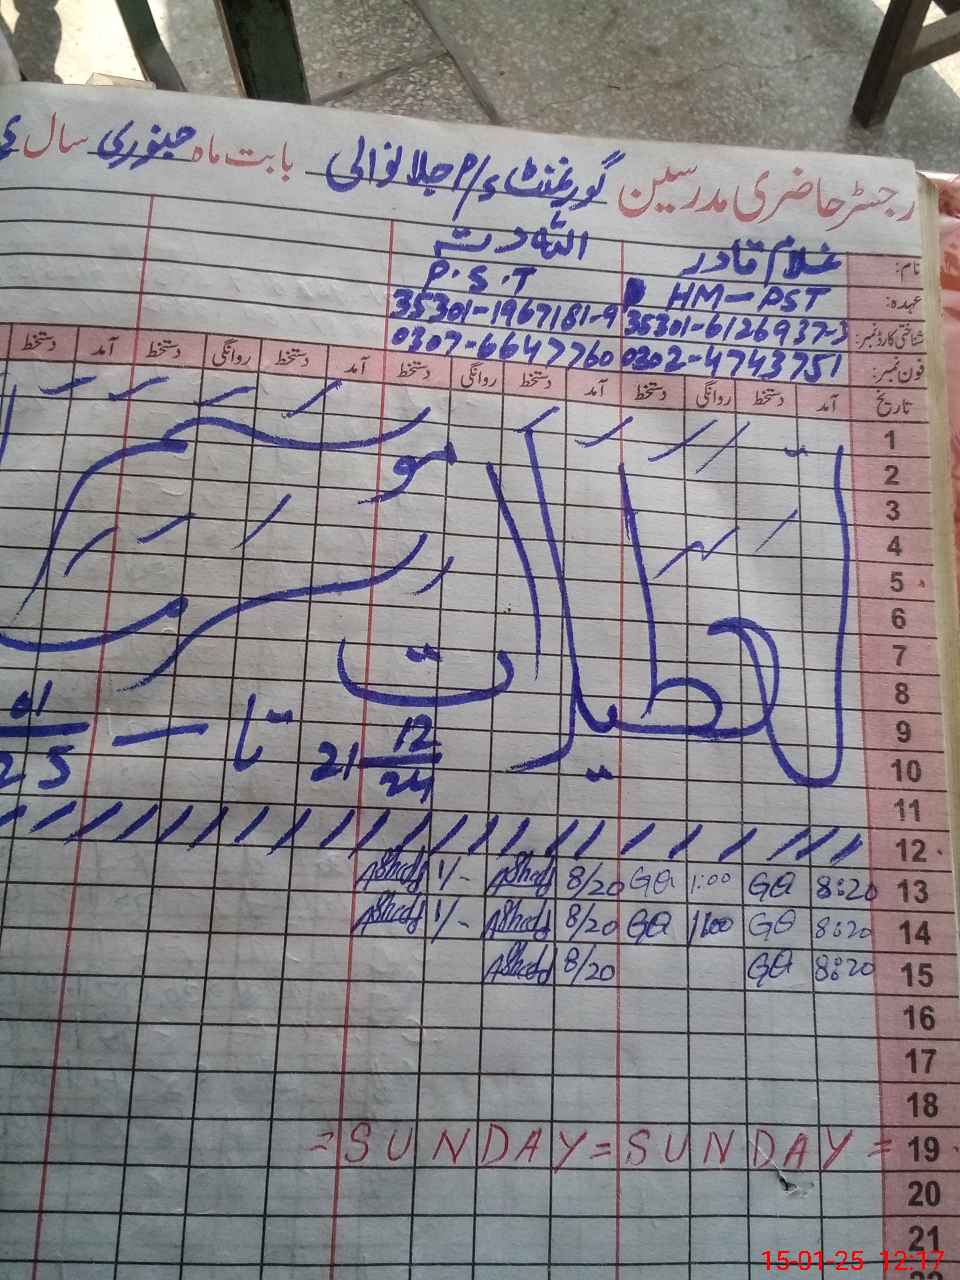 رجسٹر حاضری مدرسین گورنمنٹ P/S جلانوالی بابت ماہ جنوری سال
نام: غلام قادر اللہ دتہ
عہدہ: HM-PST P.S.T
شناختی کارڈ نمبر: 35301-6126937-3 35301-1967181-9
فون نمبر: 0302-4743751 0307-6647760
تاریخ آمد دستخط روانگی دستخط آمد دستخط روانگی دستخط آمد دستخط روانگی دستخط آمد دستخط
تعطیلات موسم سرما
21 12/24 تا 01/25
1
2
3
4
5
6
7
8
9
10
11
12
13 8:20 GQ 1:00 GQ 8/20 AShad 1/- AShad
14 8:20 GQ 1:00 GQ 8/20 AShad 1/- AShad
15 8:20 GQ 8/20 AShad
16
17
18
19 = SUNDAY = SUNDAY =
20
21
15-01-25 12:17